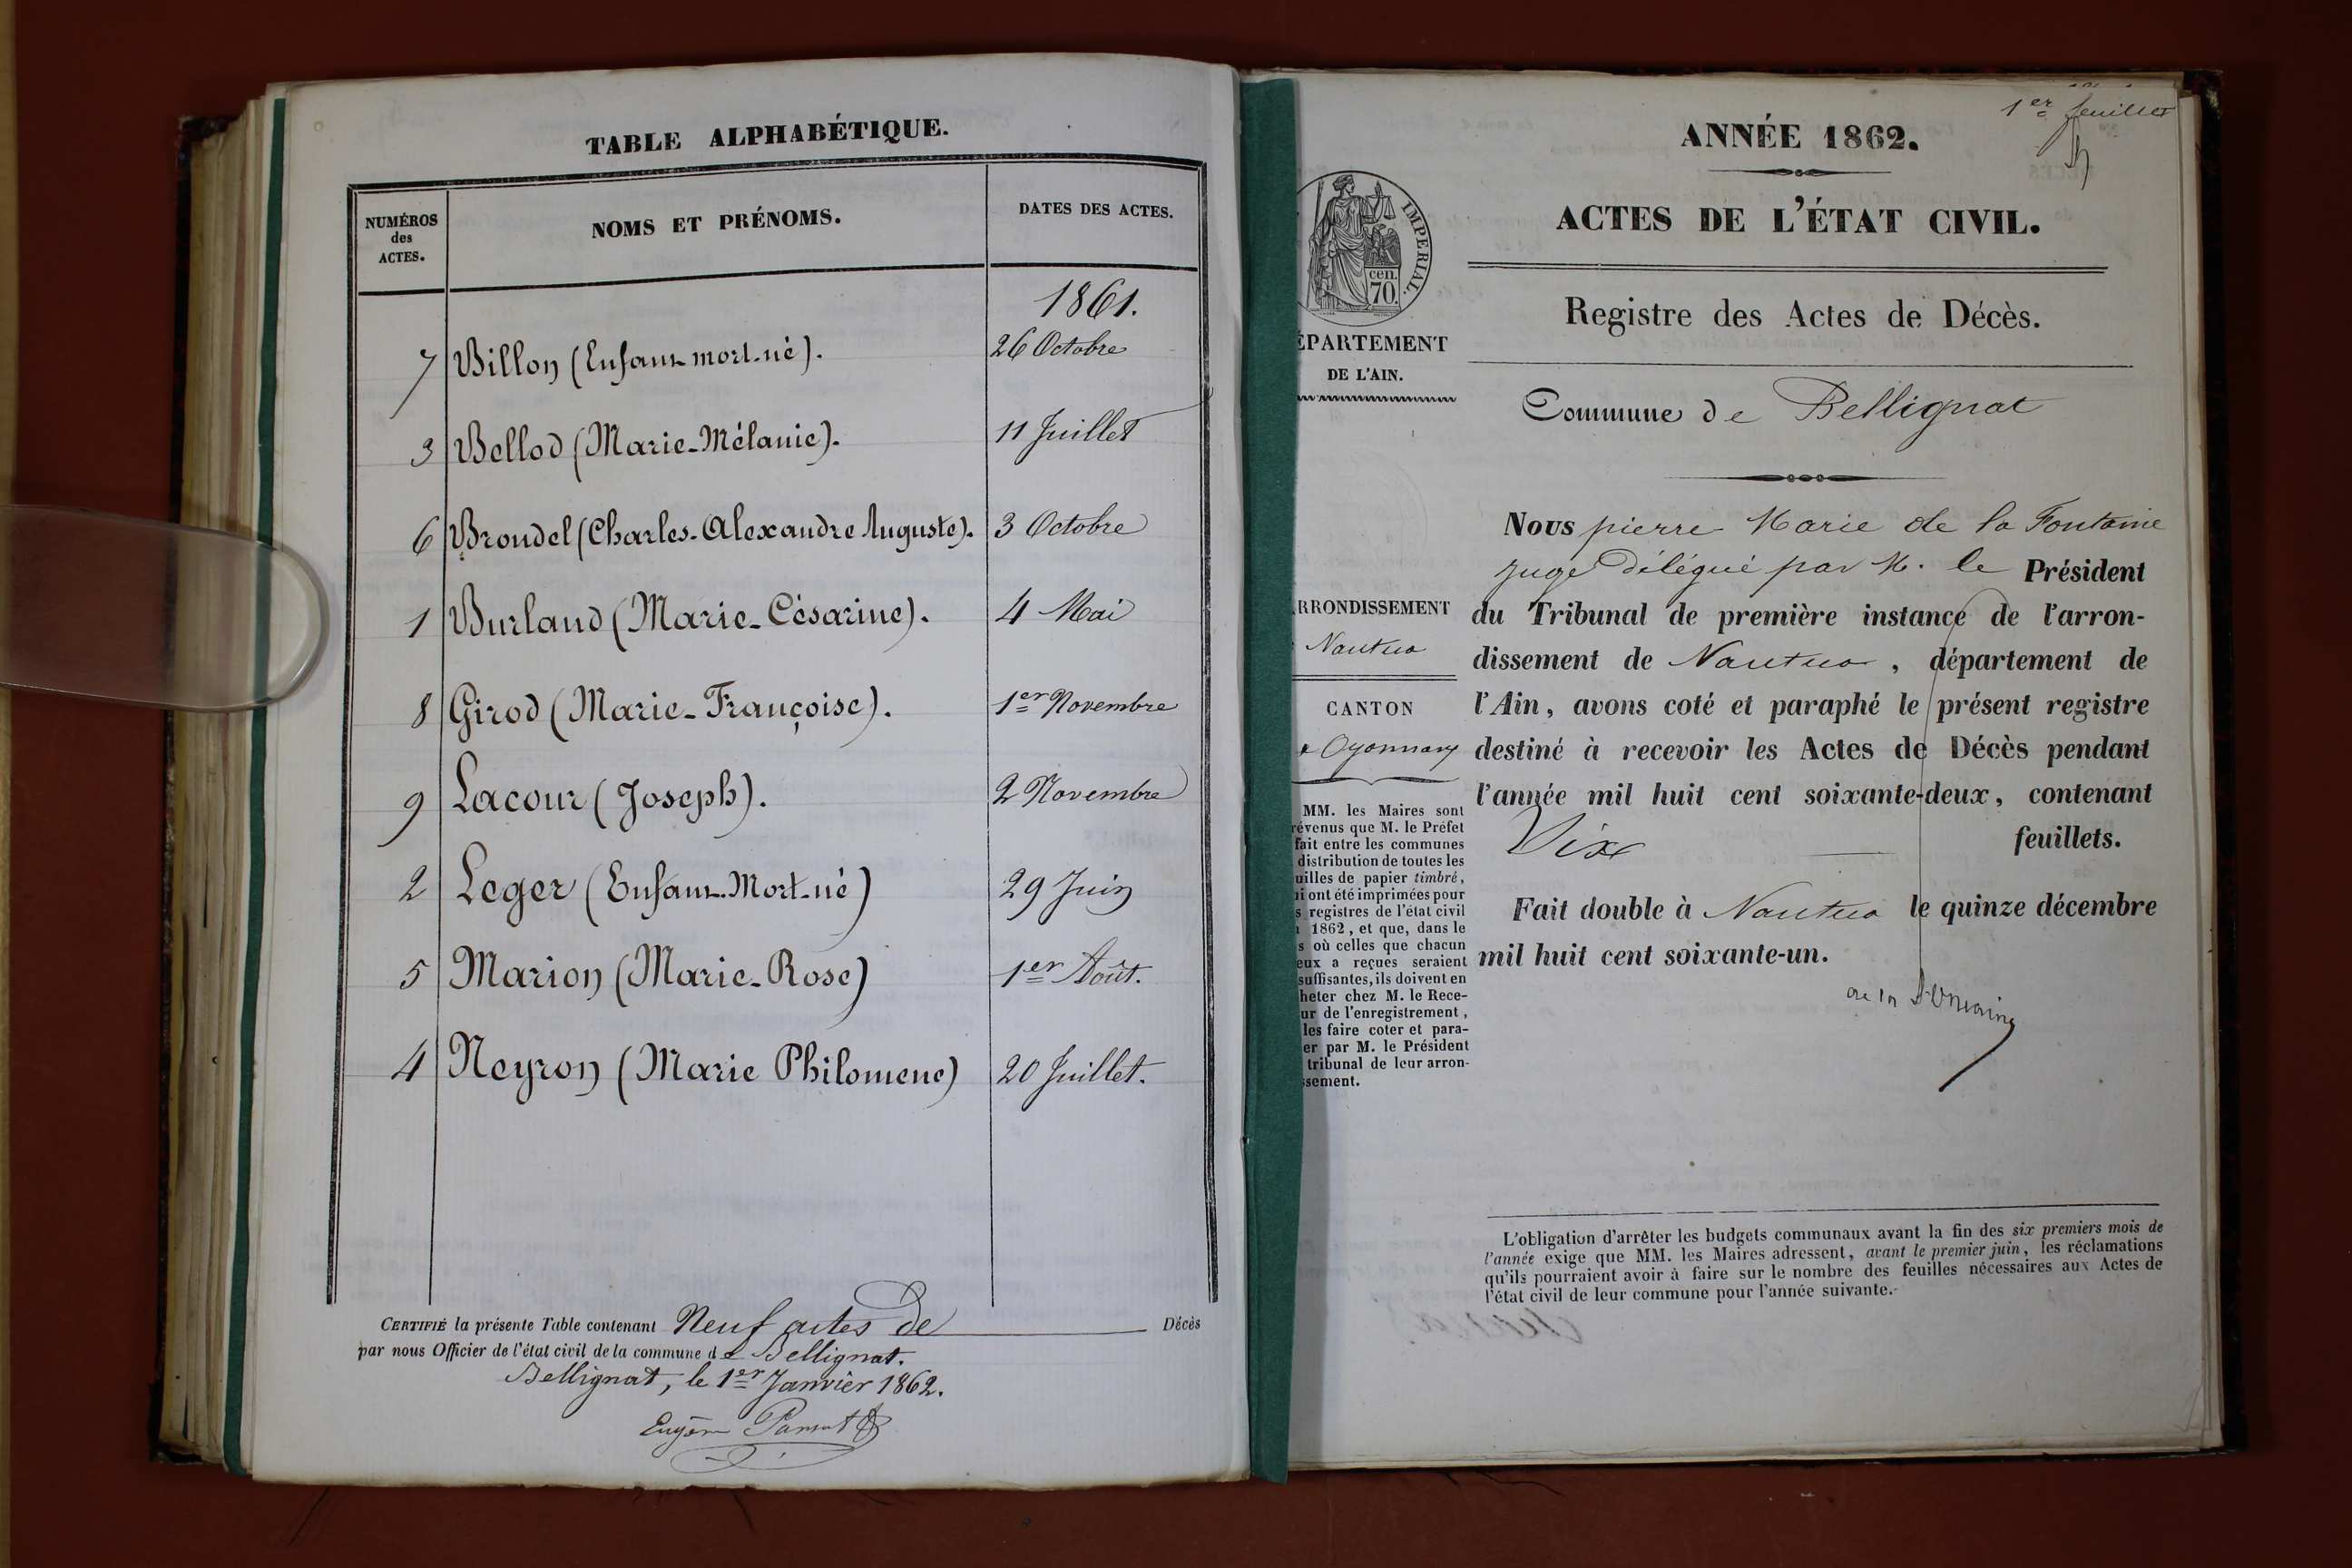 TABLE ALPHABÉTIQUE.
NUMÉROS des ACTES.
NOMS ET PRÉNOMS.
DATES DES ACTES.
1861.
7 Billon (Enfant mort-né). 26 Octobre
3 Bellod (Marie-Mélanie). 11 Juillet
6 Brondel (Charles-Alexandre Auguste). 3 Octobre
1 Burland (Marie-Césarine). 4 Mai
8 Girod (Marie-Françoise). 1er Novembre
9 Lacour (Joseph). 2 Novembre
2 Leger (Enfant-Mort-né) 29 Juin
5 Marion (Marie-Rose) 1er Août.
4 Neyron (Marie Philomene) 20 Juillet.
CERTIFIÉ la présente Table contenant Neuf actes de Décès
par nous Officier de l'état civil de la commune de Bellignat.
Bellignat, le 1er Janvier 1862.
1er feuillet
ANNÉE 1862.
ACTES DE L'ÉTAT CIVIL.
IMPERIAL.
cen.
70.
Registre des Actes de Décès.
ÉPARTEMENT
DE L'AIN.
Commune de Bellignat
RRONDISSEMENT
Nantua
CANTON
Oyonnax
MM. les Maires sont
révenus que M. le Préfet
fait entre les communes
distribution de toutes les
uilles de papier timbré,
ui ont été imprimées pour
s registres de l'état civil
1862, et que, dans le
s où celles que chacun
eux a reçues seraient
suffisantes, ils doivent en
heter chez M. le Rece-
ur de l'enregistrement,
les faire coter et para-
er par M. le Président
tribunal de leur arron-
ssement.
Nous pierre Marie de la Fontaine
juge délégué par M. le Président
du Tribunal de première instance de l'arron-
dissement de Nantua, département de
l'Ain, avons coté et paraphé le présent registre
destiné à recevoir les Actes de Décès pendant
l'année mil huit cent soixante-deux, contenant
Dix feuillets.
Fait double à Nantua le quinze décembre
mil huit cent soixante-un.
L'obligation d'arrêter les budgets communaux avant la fin des six premiers mois de
l'année exige que MM. les Maires adressent, avant le premier juin, les réclamations
qu'ils pourraient avoir à faire sur le nombre des feuilles nécessaires aux Actes de
l'état civil de leur commune pour l'année suivante.